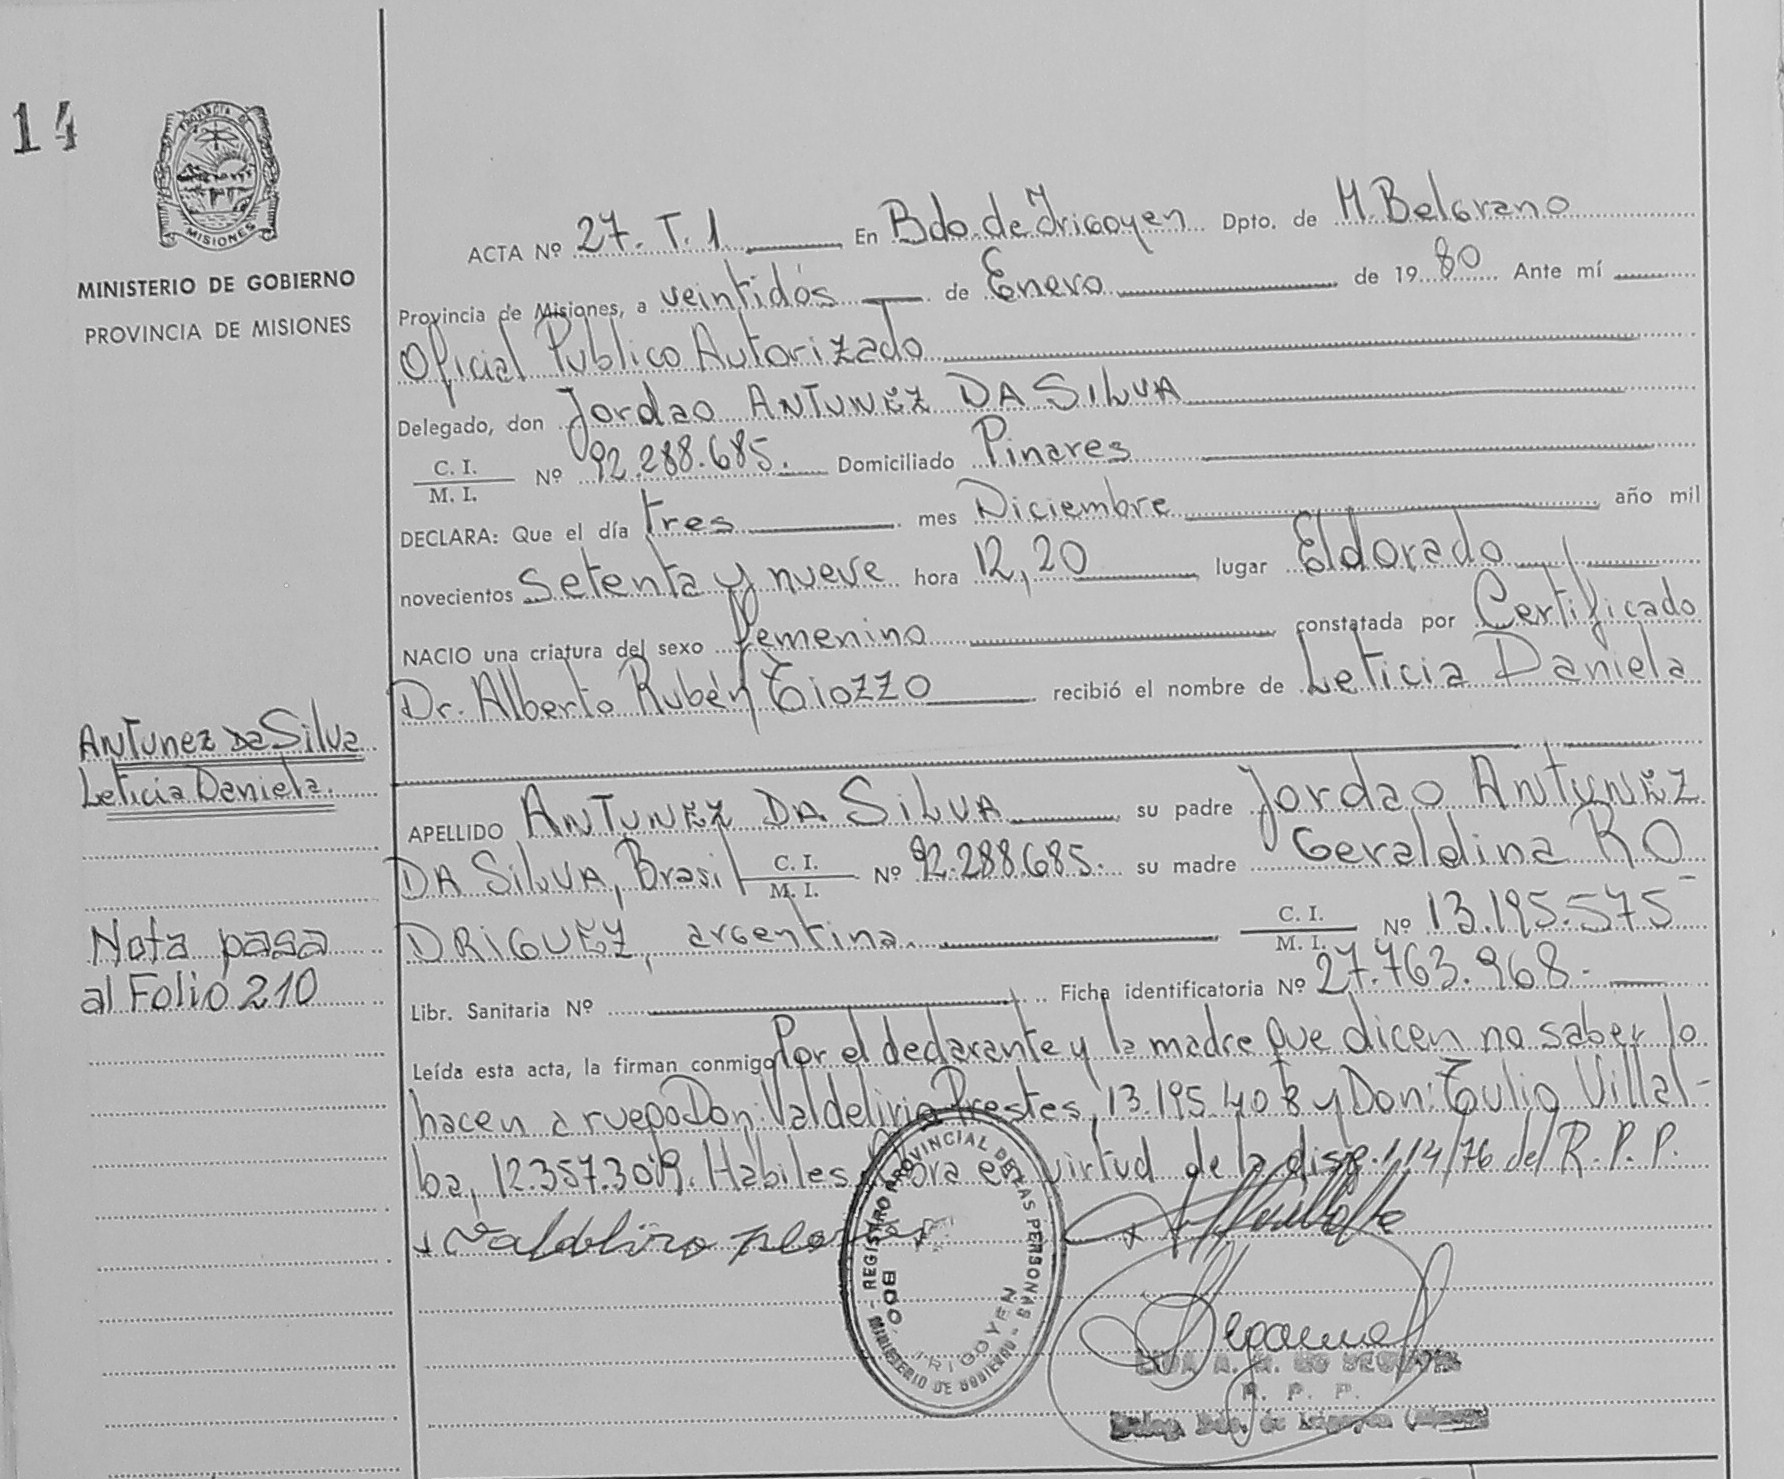 14
PROVINCIA DE
MISIONES
MINISTERIO DE GOBIERNO
PROVINCIA DE MISIONES
ACTA Nº 27. T. 1 En Bdo. de Irigoyen Dpto. de M. Belgrano
Provincia de Misiones, a veintidós de Enero de 1980 Ante mí
Oficial Publico Autorizado
Delegado, don Jordao ANTUNEZ DA SILVA
C. I.
M. I. Nº 92.288.685. Domiciliado Pinares
DECLARA: Que el día tres mes Diciembre año mil
novecientos setenta y nueve hora 12,20 lugar Eldorado
NACIO una criatura del sexo femenino constatada por Certificado
Dr. Alberto Rubén Tiozzo recibió el nombre de Leticia Daniela
Antunez Da Silva
Leticia Daniela.
APELLIDO ANTUNEZ DA SILVA su padre Jordao ANTUNEZ
DA SILVA, Brasil C. I.
M. I. Nº 92.288.685. su madre Geraldina RO
DRIGUEZ, argentina. C. I.
M. I. Nº 13.195.575
Nota pasa
al Folio 210
Libr. Sanitaria Nº Ficha identificatoria Nº 27.763.968.-
Leída esta acta, la firman conmigo Por el declarante y la madre que dicen no saber lo
hacen a ruego Don: Valdelirio Prestes, 13.195.408 y Don: Tulio Villal-
ba, 12.357.309. Habiles. Obra en virtud de la disp. 114/76 del R. P. P.
MINISTERIO DE GOBIERNO - REGISTRO PROVINCIAL DE LAS PERSONAS -
BDO. IRIGOYEN
R. P. P.
Deleg. Bdo. de Irigoyen